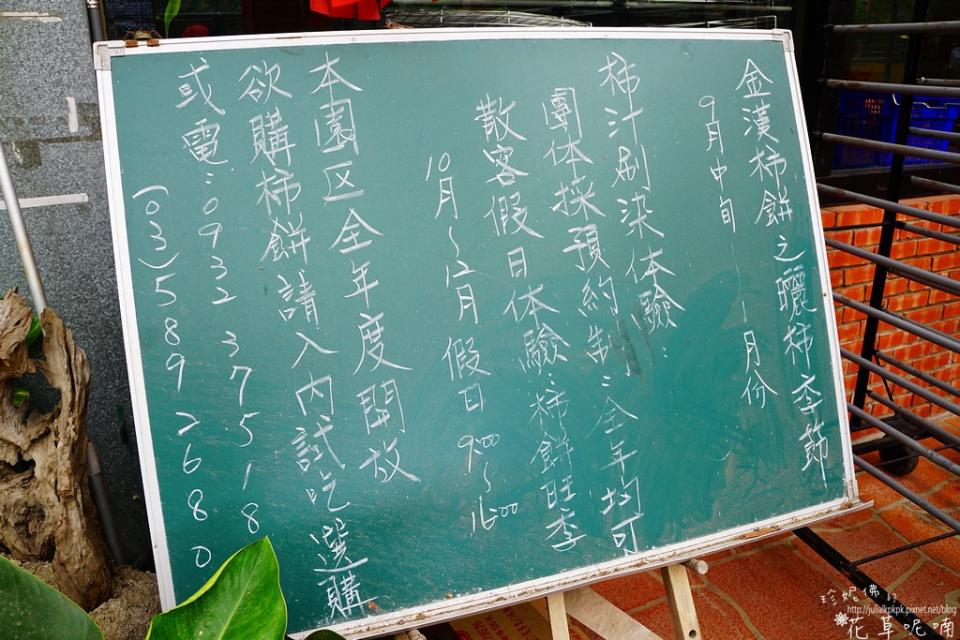 金漢柿餅之曬柿季節
9月中旬－1月份
柿汁刷染体驗:
團体採預約制:全年均可
散客假日体驗:柿餅旺季
10月~12月假日9:00~16:00
本園区全年度開放
欲購柿餅請入內試吃選購
或電:0932375188
(03)5892680
珍妮佛的
http://julialkpkpk.pixnet.net/blog
花草呢喃